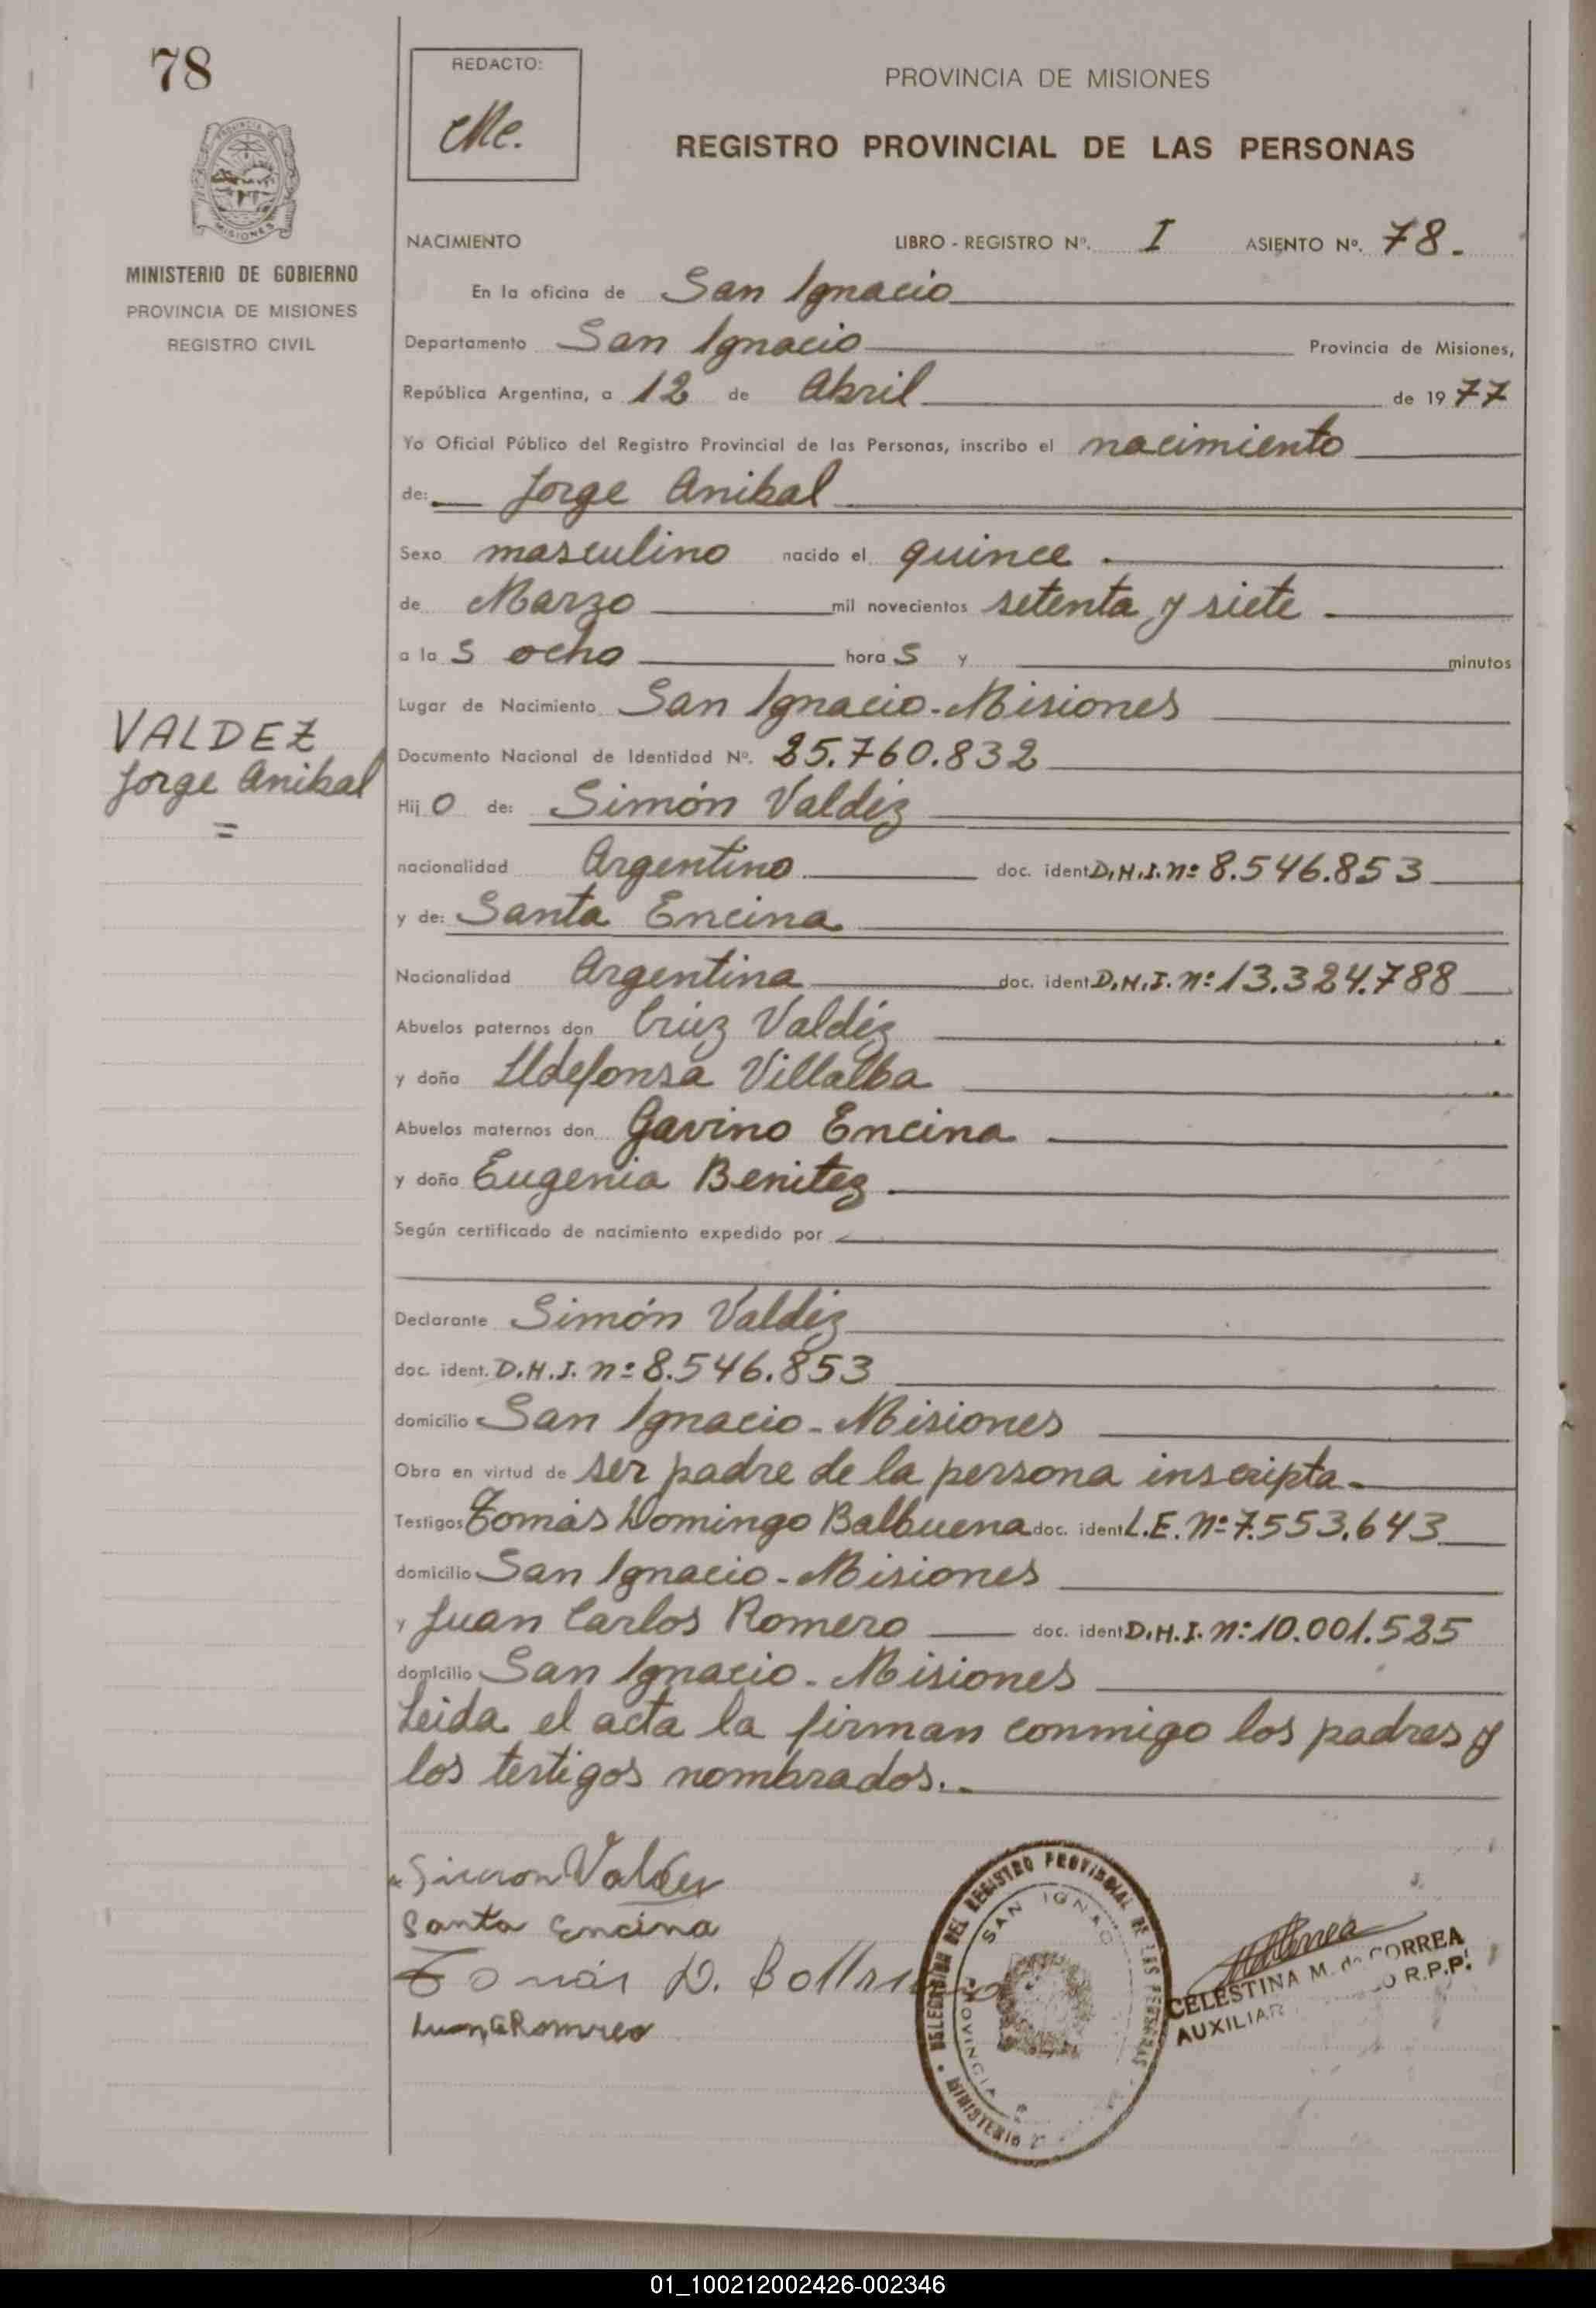 78
REDACTO:
PROVINCIA DE MISIONES
REGISTRO PROVINCIAL DE LAS PERSONAS
MISIONES
MINISTERIO DE GOBIERNO
PROVINCIA DE MISIONES
REGISTRO CIVIL
NACIMIENTO LIBRO - REGISTRO Nº. I ASIENTO Nº. 78.
En la oficina de San Ignacio
Departamento San Ignacio Provincia de Misiones,
República Argentina, a 12 de Abril de 1977
Yo Oficial Público del Registro Provincial de las Personas, inscribo el nacimiento
de: Jorge Anibal
Sexo masculino nacido el quince
de Marzo mil novecientos setenta y siete
a las ocho horas y minutos
Lugar de Nacimiento San Ignacio-Misiones
VALDEZ
Jorge Anibal
=
Documento Nacional de Identidad Nº. 25.760.832
Hijo de: Simón Valdéz
nacionalidad Argentino doc. ident D.N.I. nº 8.546.853
y de: Santa Encina
Nacionalidad Argentina doc. ident D.N.I. nº 13.324.788
Abuelos paternos don Crúz Valdéz
y doña Ildefonsa Villalba
Abuelos maternos don Gavino Encina
y doña Eugenia Benitez
Según certificado de nacimiento expedido por
Declarante Simón Valdéz
doc. ident. D.N.I. nº 8.546.853
domicilio San Ignacio-Misiones
Obra en virtud de ser padre de la persona inscripta.
Testigos Tomás Domingo Balbuena doc. ident L.E. nº 7.553.643
domicilio San Ignacio-Misiones
y Juan Carlos Romero doc. ident D.N.I. nº 10.001.525
domicilio San Ignacio-Misiones
Leida el acta la firman conmigo los padres y
los testigos nombrados.
Simon Valdez
Santa Encina
Tomás D.
DELEGACION DEL REGISTRO PROVINCIAL DE LAS PERSONAS
SAN IGNACIO
PROVINCIA
MINISTERIO
CELESTINA M. de CORREA
AUXILIAR R.P.P.
01_100212002426-002346